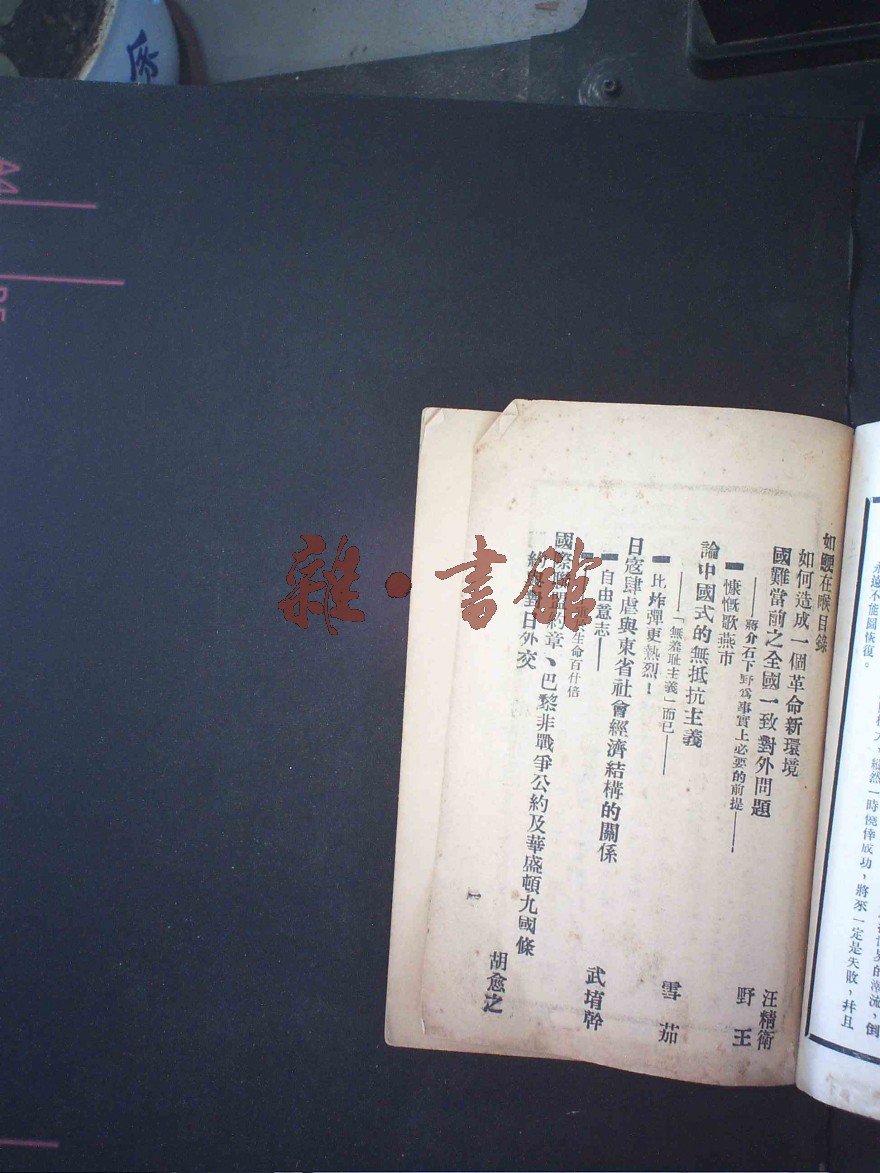 如鯁在喉目錄
如何造成一個革命新環境 汪精衛
國難當前之全國一致對外問題 野王
——蔣介石下野為事實上必要的前提——
慷慨歌燕市
論中國式的無抵抗主義 雪茹
——「無羞恥主義」而已——
比炸彈更熱烈！
日寇肆虐與東省社會經濟結構的關係 武堉幹
自由意志——
生命百什倍
國際 章、巴黎非戰爭公約及華盛頓九國條
對日外交 胡愈之
二
永遠不能圖恢復。
縱然一時僥倖成功，將來一定是失敗，幷且
的潮流，倒
雜·書館
A4